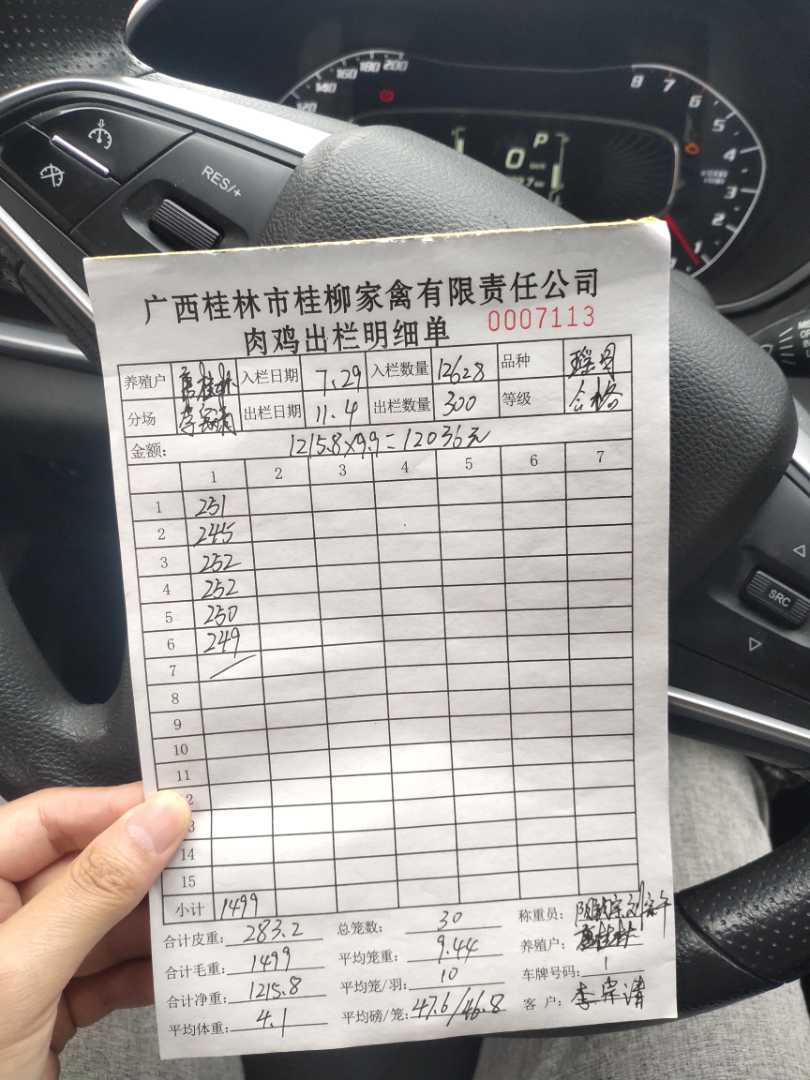 200
180
160
140
120
8
7
6
5
4
3
2
1
P
0
RES/+
SRC
广西桂林市桂柳家禽有限责任公司
肉鸡出栏明细单 0007113
养殖户 入栏日期 7.29 入栏数量 12628 品种 瑶鸡
分场 出栏日期 11.4 出栏数量 300 等级 合格
金额: 1215.8×9.9=12036元
1 2 3 4 5 6 7
1 251
2 245
3 252
4 252
5 250
6 249
7
8
9
10
11
14
15
小计 1499
合计皮重: 283.2 总笼数: 30 称重员:
合计毛重: 1499 平均笼重: 9.44 养殖户:
合计净重: 1215.8 平均笼/羽: 10 车牌号码: 1
平均体重: 4.1 平均磅/笼: 47.6/46.8 客户: 李宗清